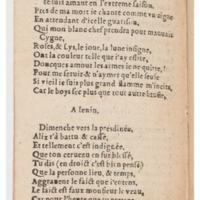 te fuit amant en l'extreme saison.
Pres de ma mort ie chante comme vn cigne
En attendant d'icelle guarison,
Qui mon blanc chef prendra pour mauuais
Cygne,
Roses, & Lys, le iour, la lune insigne,
Ont la couleur telle que t'ay
Doncques amour les armes ne
Pour me seruir & n'aymer qu'elle seule
Si vieil ie suis plus grand flamme m'incite,
Car le boys sec plus que tout autre brusle.
A Ienin.
Dimenche vers la presdinée
Aliz t'a battu & cassé,
Et tellement c'est indignée,
Que ton cerueau en fut blessé,
Tu dis (en droict c'est bien pensé)
Que la personne lieu, & temps,
Aggrauent le faict que i'entens,
Le faict est faux monsieur le veau,